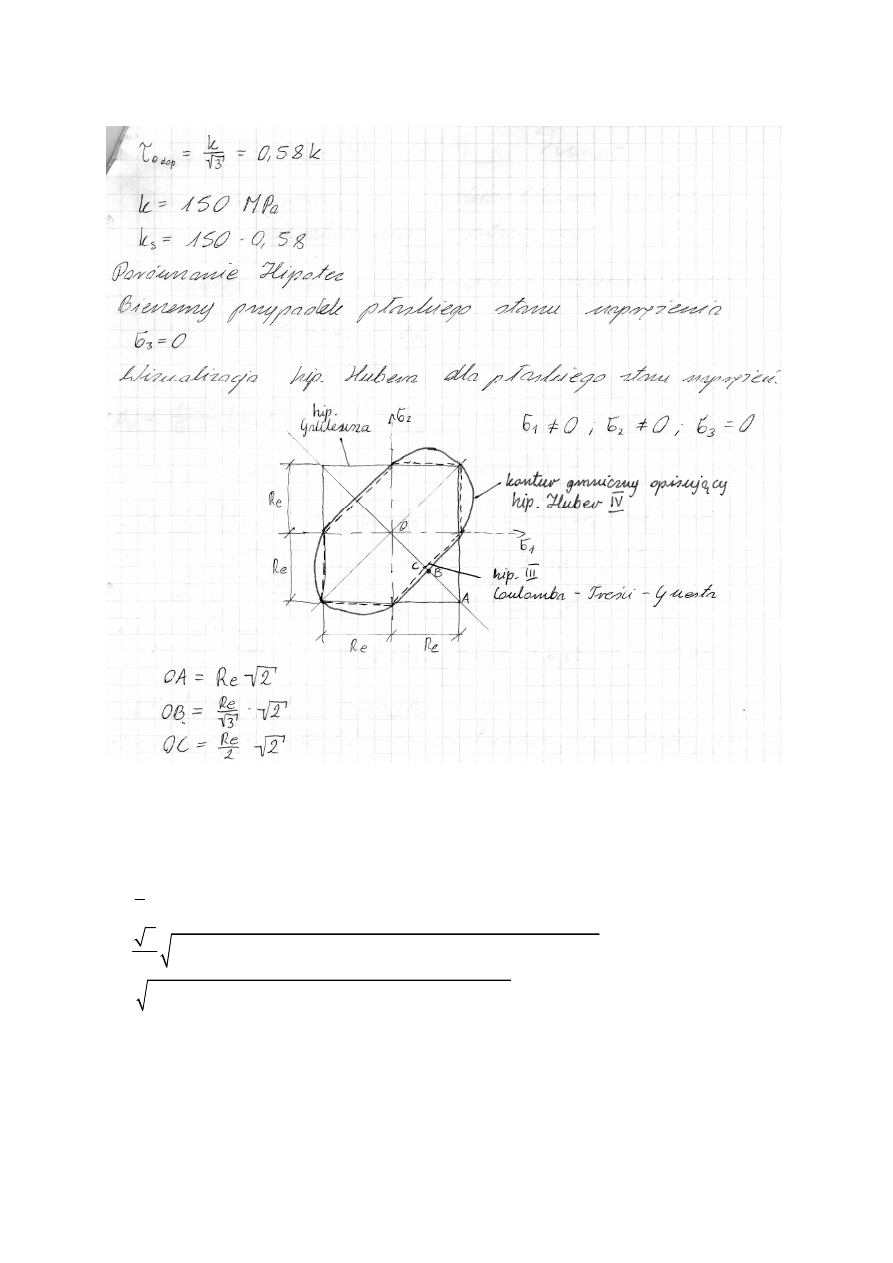 τo dop = k/√3 = 0,58 k
k = 150 MPa
ks = 150 · 0,58
Porównanie Hipotez
Bierzemy przypadek płaskiego stanu naprężenia
σ3 = 0
Wizualizacja hip. Hubera dla płaskiego stanu naprężeń.
σ1 ≠ 0 ; σ2 ≠ 0 ; σ3 = 0
hip.
Galileusza
σ2
kontur graniczny opisujący
hip. Huber IV
Re
O
σ1
Re
C
B
hip. III
Coulomba - Treści - Guesta
A
Re Re
OA = Re √2
OB = Re/√3 · √2
OC = Re/2 √2